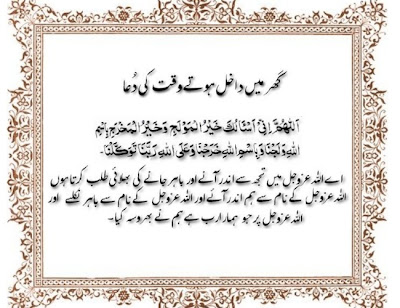 گھر میں داخل ہوتے وقت کی دُعا
اَللّٰهُمَّ اِنِّیْ اَسْئَالُكَ خَیْرَ الْمَوْلَجِ وَخَیْرَ الْمَخْرَجِ بِسْمِ
اللهِ وَلَجْنَا وَبِاسْمِ اللهِ خَرَجْنَا وَعَلَی اللهِ رَبِّنَا تَوَكَّلْنَا۔
اے اللہ عزوجل میں تجھ سے اندر آنے اور باہر جانے کی بھلائی طلب کرتا ہوں
اللہ عزوجل کے نام سے ہم اندر آئے اور اللہ عزوجل کے نام سے باہر نکلے اور
اللہ عزوجل پر جو ہمارا رب ہے ہم نے بھروسہ کیا۔